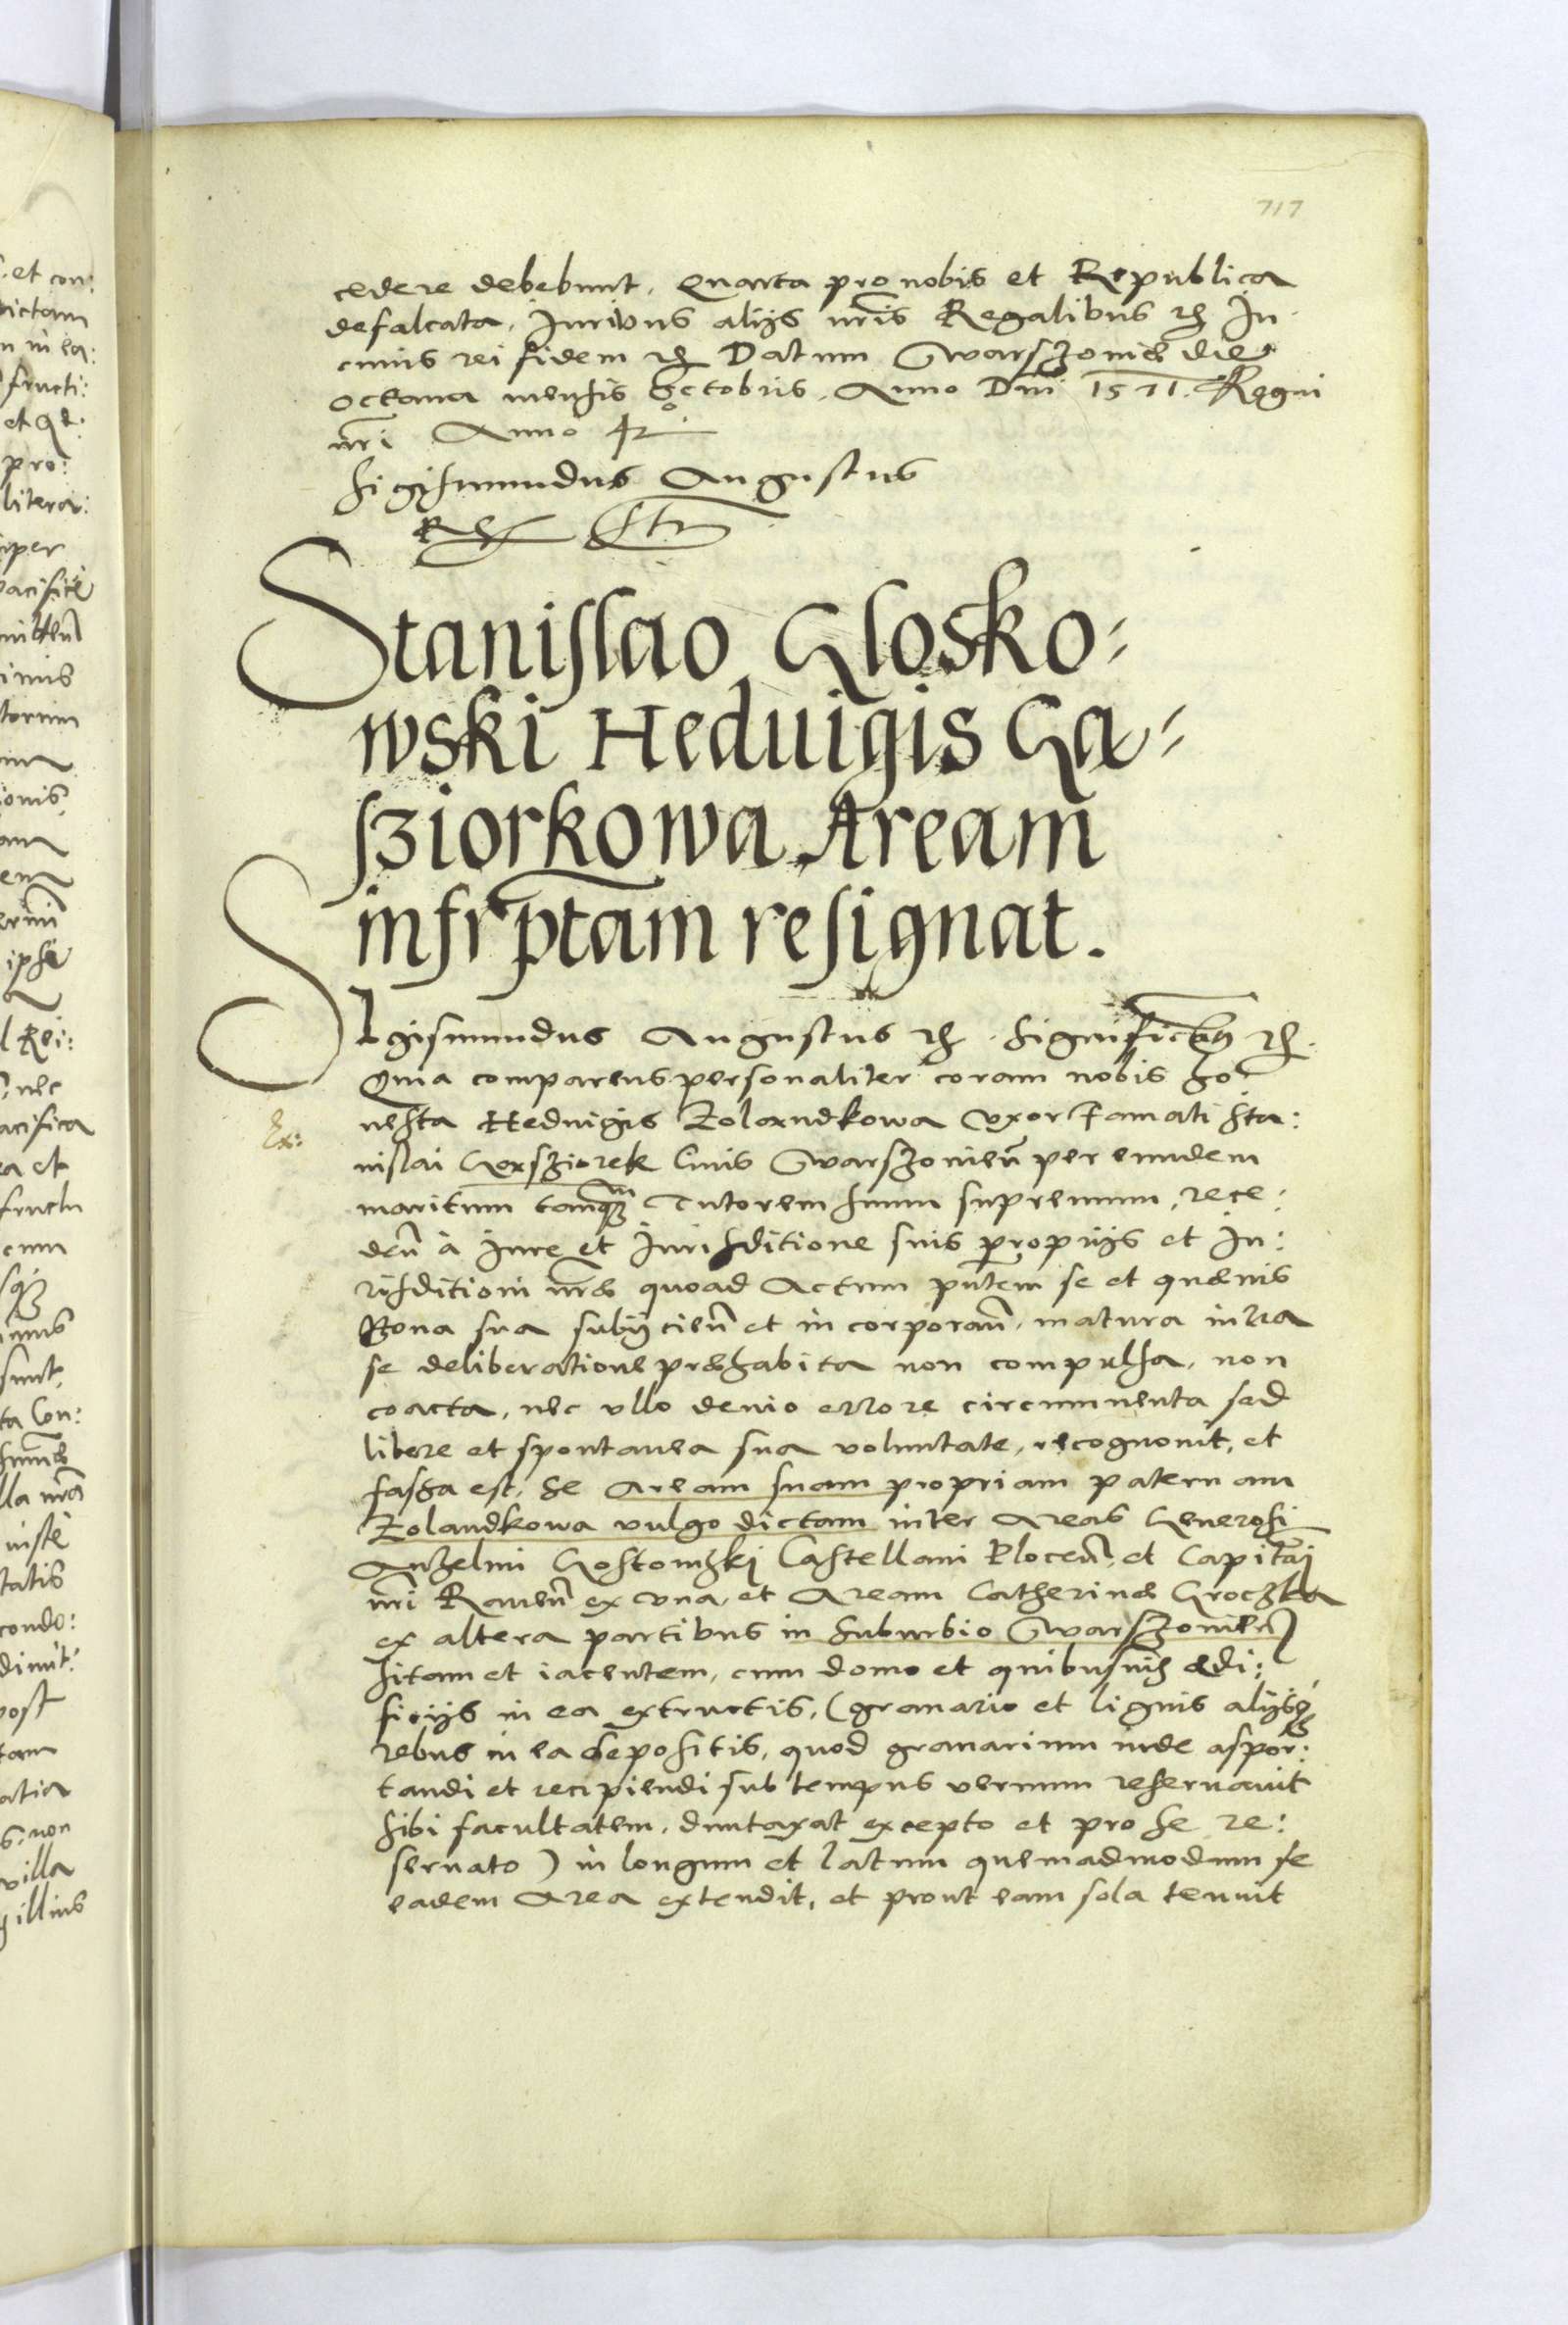 717
cedere debebunt, Quarta pro nobis et Republica
defalcata, Iuribus alijs nris Regalibus etc In
cuius rei fidem etc Datum Warszouiæ die
octaua mensis Octobris, Anno Dni 1571. Regni
nri Anno 42
Sigismundus Augustus
Rex
Stanislao Glosko=
wski Heduigis Ga=
sziorkowa Aream
infrptam resignat.
SIgismundus Augustus etc. significamus etc.
Quia comparens personaliter coram nobis ho
nesta Heduigis Zolandkowa Vxor Famati Sta:
Ex:
nislai Gąsziorek Ciuis Warszouien per eundem
maritum tamquam Tutorem suum supremum, rece:
den à Iure et Iurisditione suis proprijs et Iu:
risditioni nræ quoad Actum pntem se et quæuis
Bona sua subijcien et incorporan, matura intra
se deliberatione præhabita non compulsa, non
coacta, nec vllo deuio errore circumuenta sed
libere et spontanea sua voluntate, recognouit, et
fassa est, Se Aream suam propriam paternam
Zolandkowa vulgo dictam inter Areas Generosi
Anzelmi Gostomski Castellani Plocen, et Capitai
nri Rauen ex vna, et Aream Catherinæ Groczka
ex altera partibus in suburbio Warszouien
sitam et iacentem, cum domo et quibusuis ædi:
ficijs in ea extructis, (granario et lignis alijsq
rebus in ea depositis, quod granarium inde aspor:
tandi et recipiendi sub tempus vernum reseruauit
sibi facultatem, duntaxat excepto et pro se re:
seruato) in longum et latum quemadmodum se
eadem Area extendit, et prout eam sola tenuit